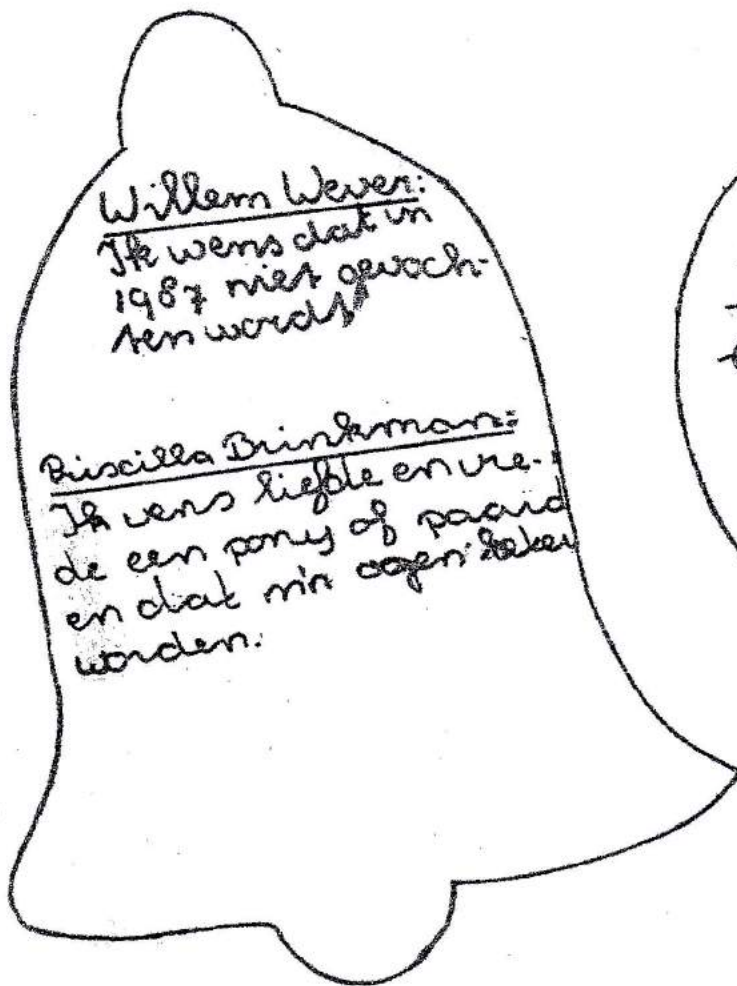 Willem Wever:
Ik wens dat in
1987 niet gevoch-
ten wordt
Priscilla Brinkman:
Ik wens liefde en vre-
de een pony of paard
en dat m'n ogen beter
worden.